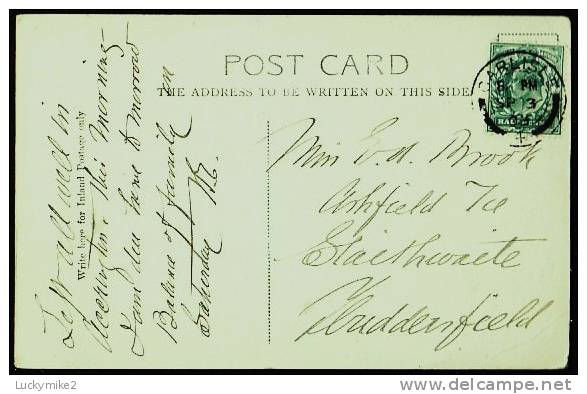 POST CARD
THE ADDRESS TO BE WRITTEN ON THIS SIDE
Write here for Inland Postage only
Left all well in
Accrington this morning
I am due home to-morrow
Balance of family on
Saturday
CARLISLE
8 PM
SP 3
HALFPENNY
Miss E. A. Brook
Ashfield Tce
Slaithwaite
Huddersfield
Luckymike2
delcampe.net